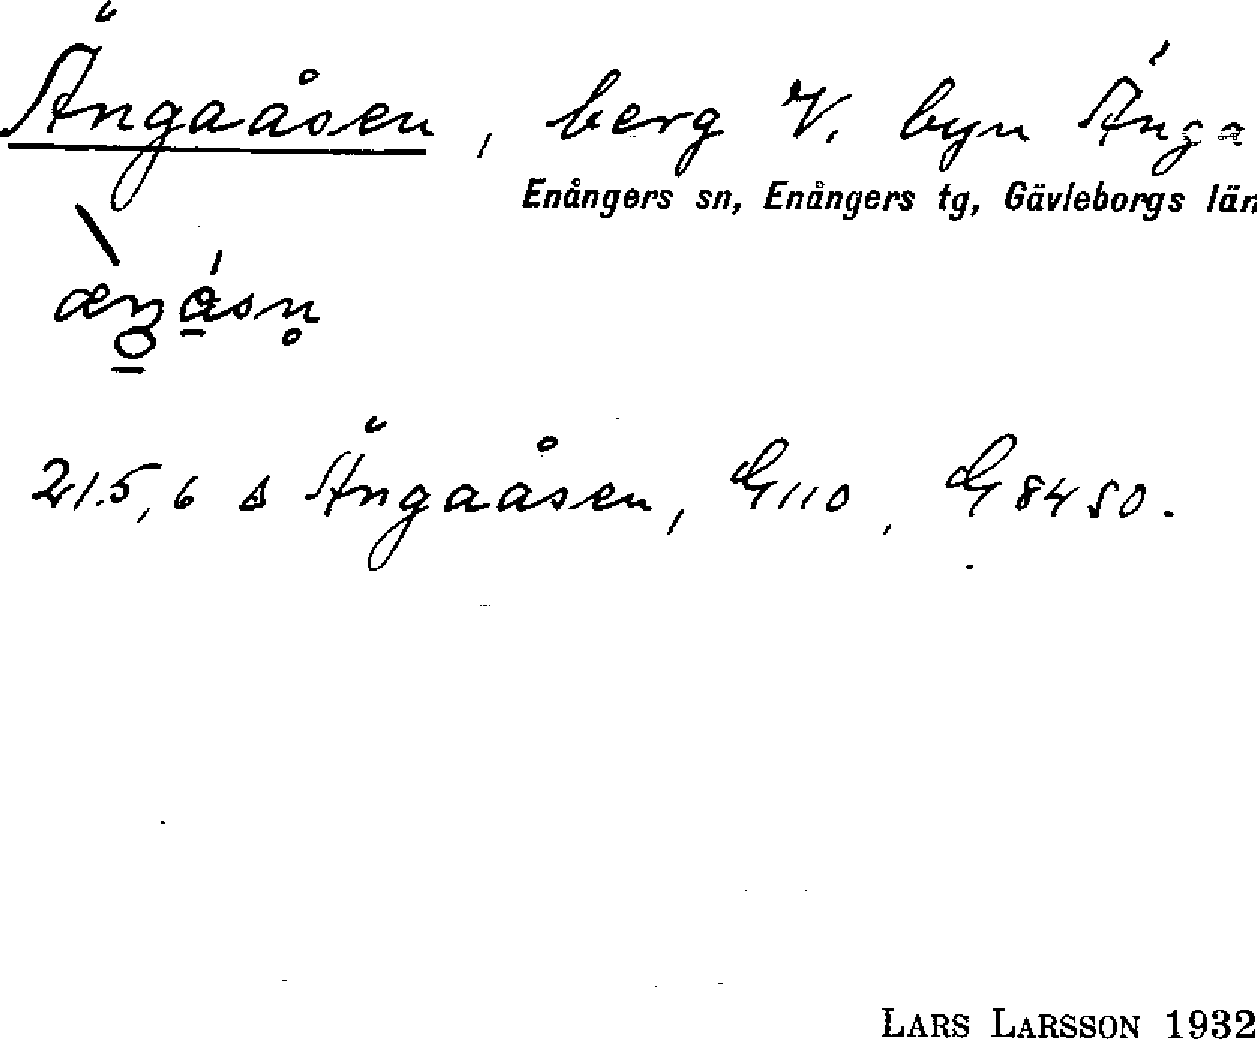 Ängaåsen, berg V. byn Änga
Enångers sn, Enångers tg, Gävleborgs län
21.5,6 Δ Ängaåsen, G110, G8450.
LARS LARSSON 1932